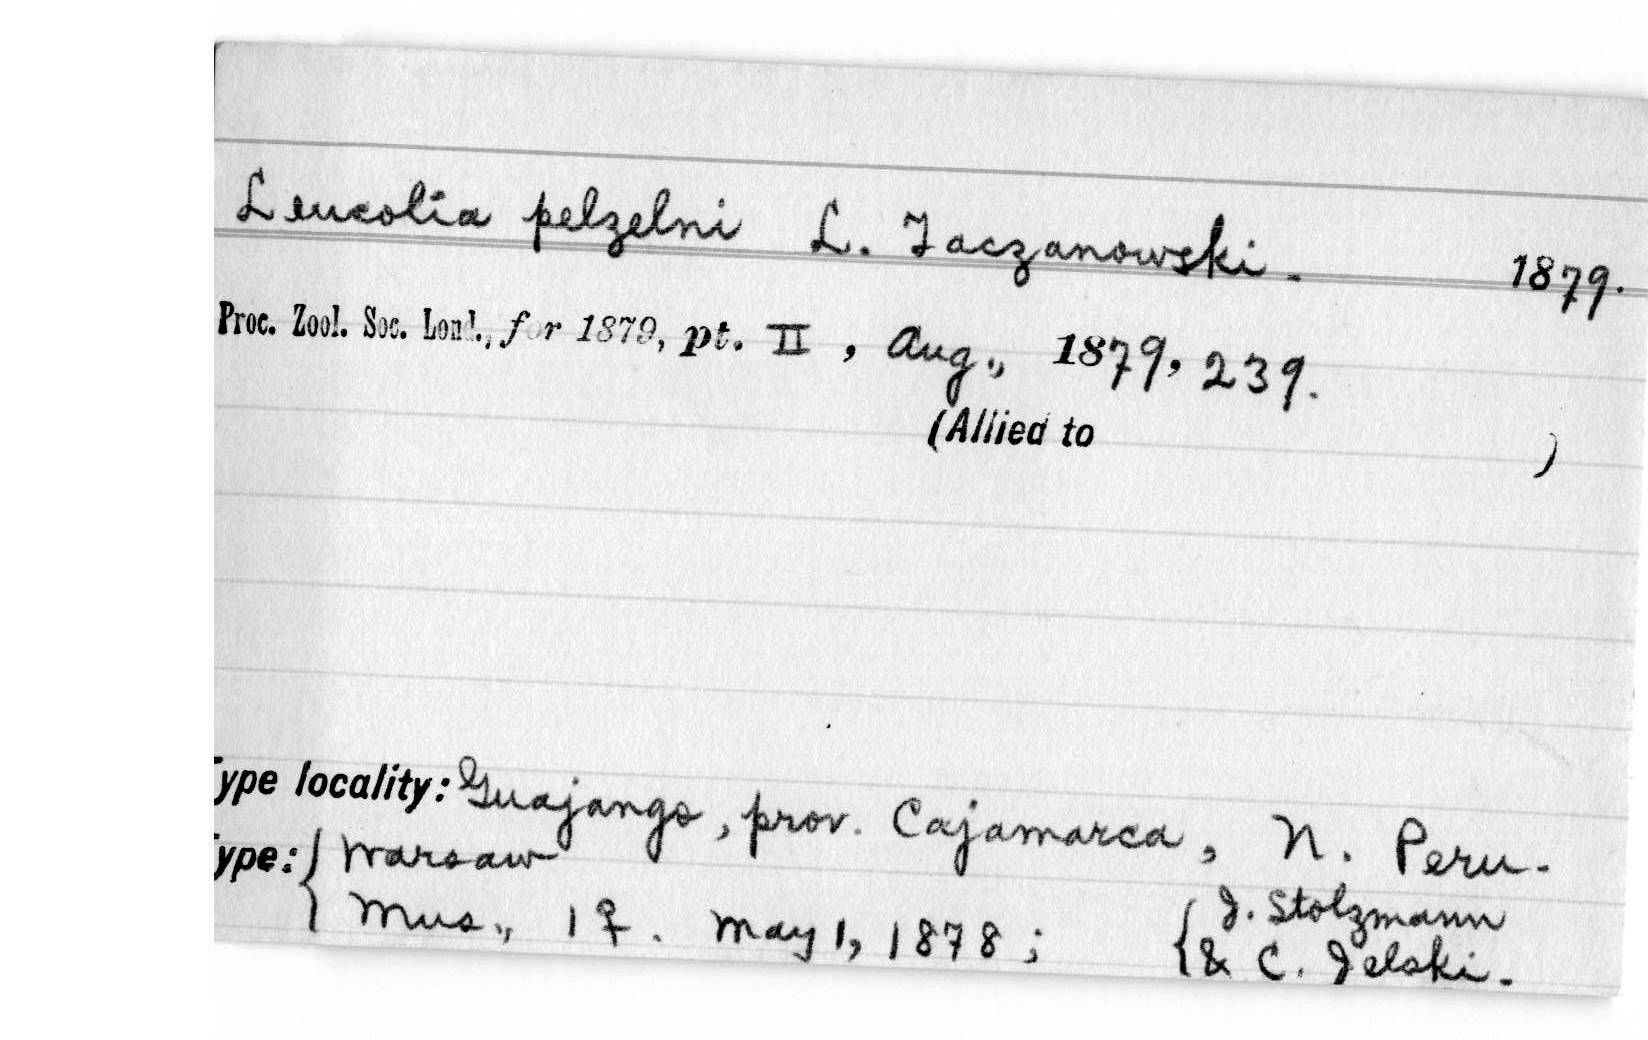 Leucolia pelzelni L. Taczanowski. 1879.
Proc. Zool. Soc. Lond., for 1879, pt. II, Aug., 1879, 239.
(Allied to )
Type locality: Guajango, prov. Cajamarca, N. Peru.
Type: { Warsaw
Mus., 1♀. May 1, 1878; { J. Stolzmann
& C. Jelski.